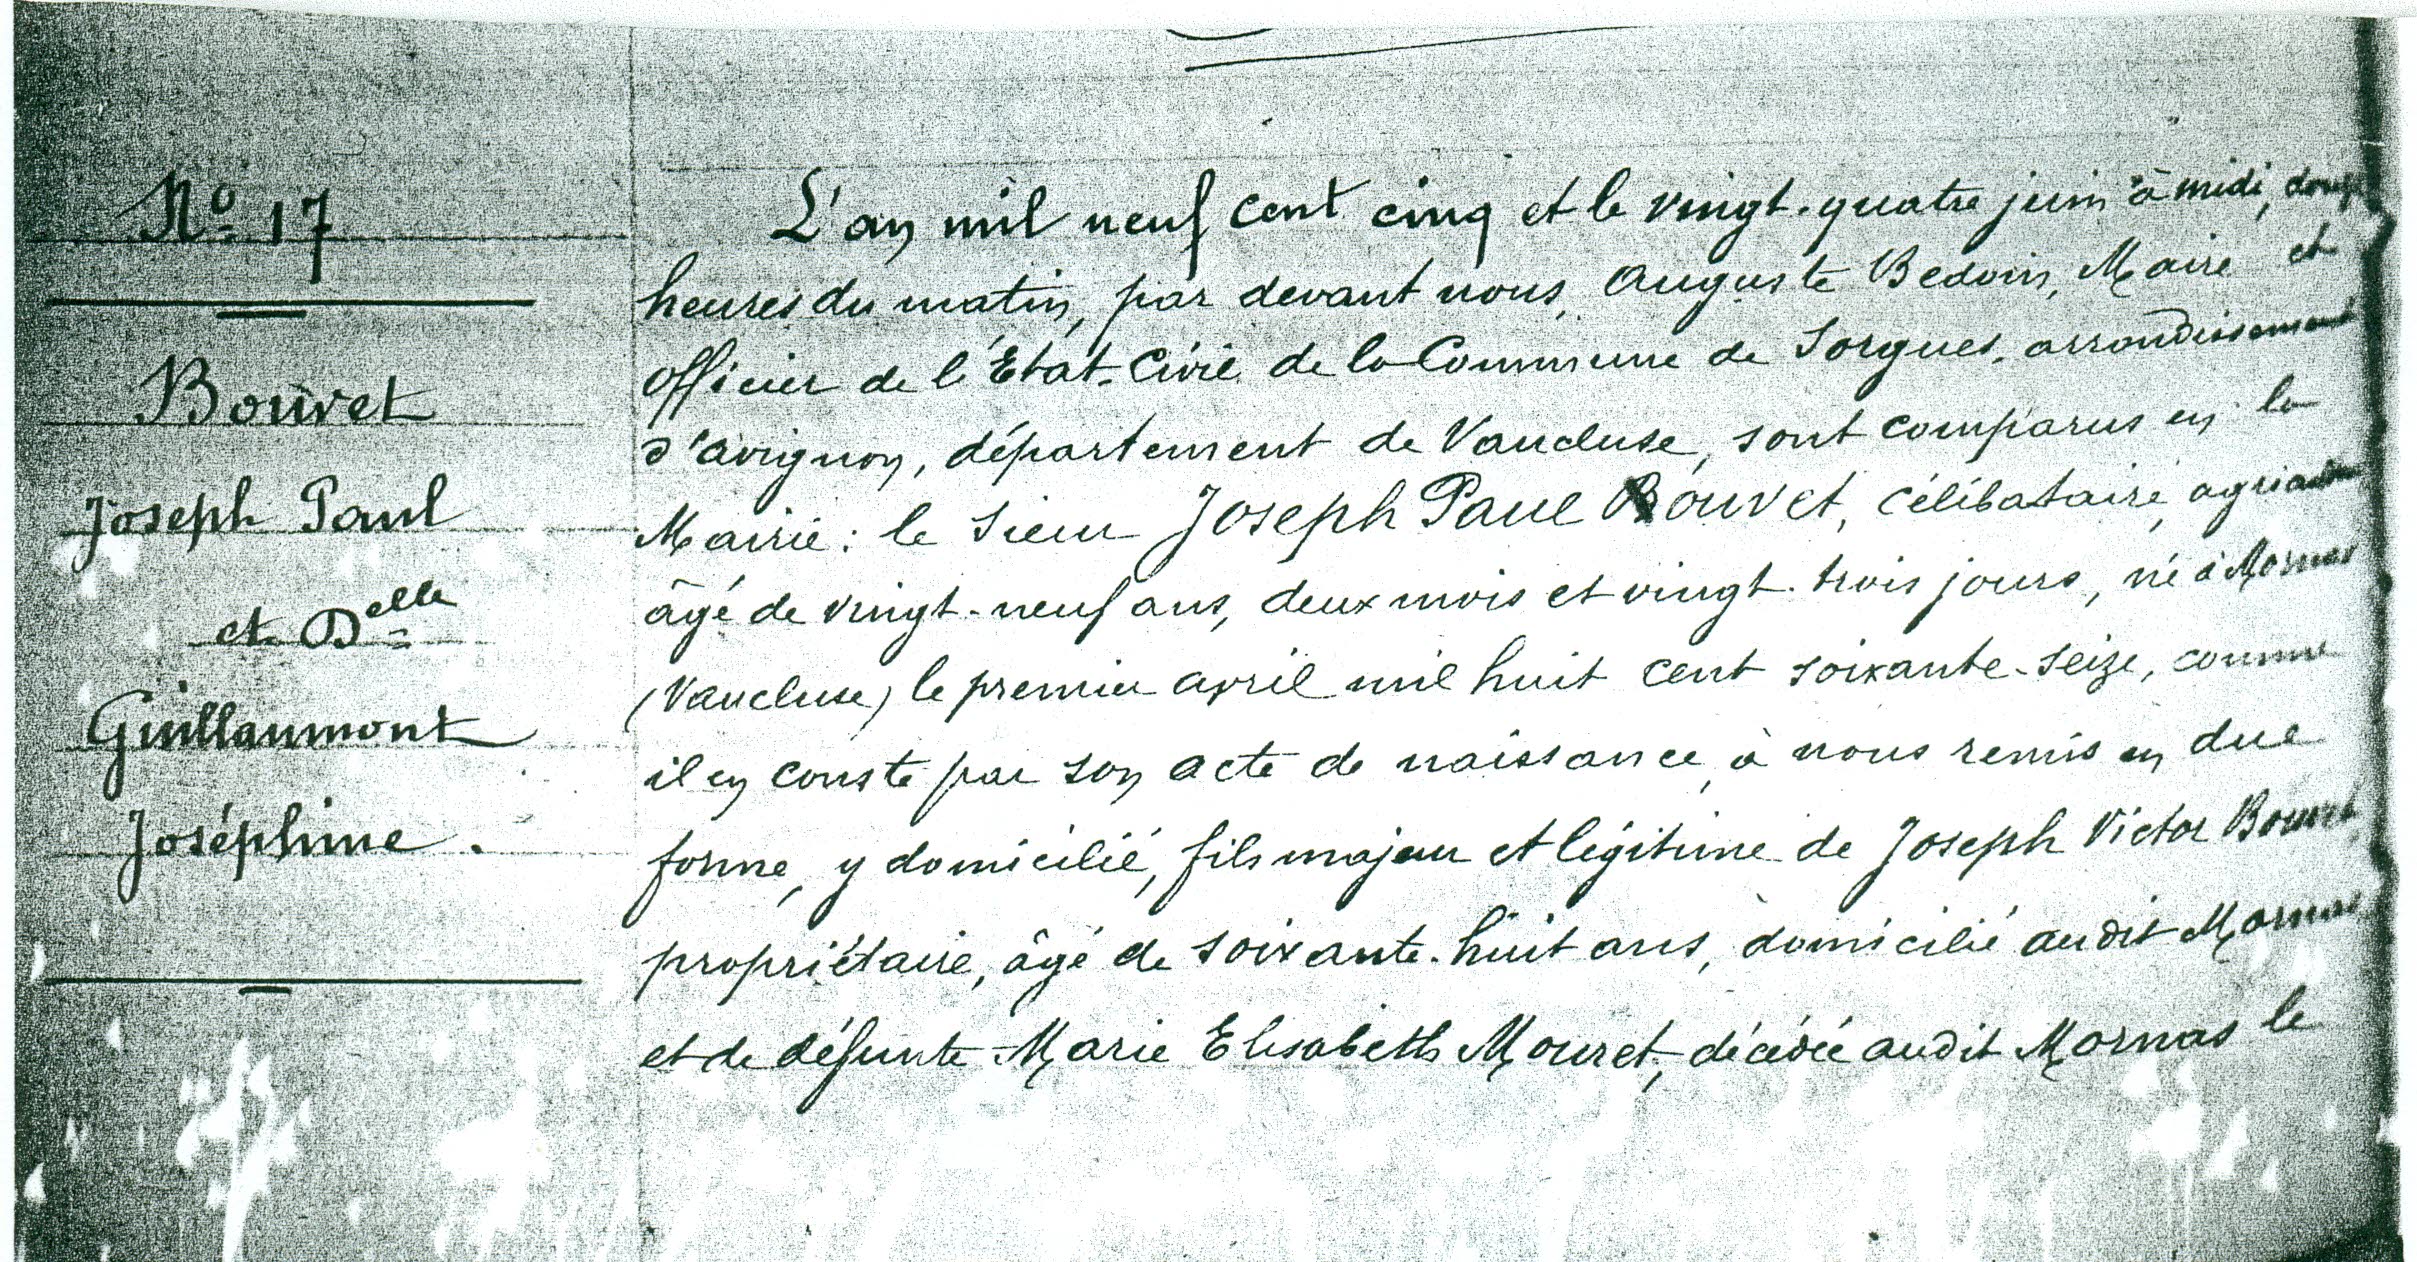 Nº 17
Bouvet
Joseph Paul
et Delle
Guillaumont
Joséphine.
L'an mil neuf cent cinq et le vingt-quatre juin à midi, douze
heures du matin, par devant nous, Auguste Bedoin, Maire et
Officier de l'Etat-Civil de la Commune de Sorgues, arrondissement
d'Avignon, département de Vaucluse, sont comparus en la
Mairie: le sieur Joseph Paul Bouvet, célibataire,
âgé de vingt-neuf ans, deux mois et vingt-trois jours, né à Mornas
(Vaucluse) le premier avril mil huit cent soixante-seize, comme
il en conste par son acte de naissance, à nous remis en due
forme, y domicilié, fils majeur et légitime de Joseph Victor Bouvet,
propriétaire, âgé de soixante-huit ans, domicilié audit Mornas
et de défunte Marie Elisabeth Mouret, décédée audit Mornas le